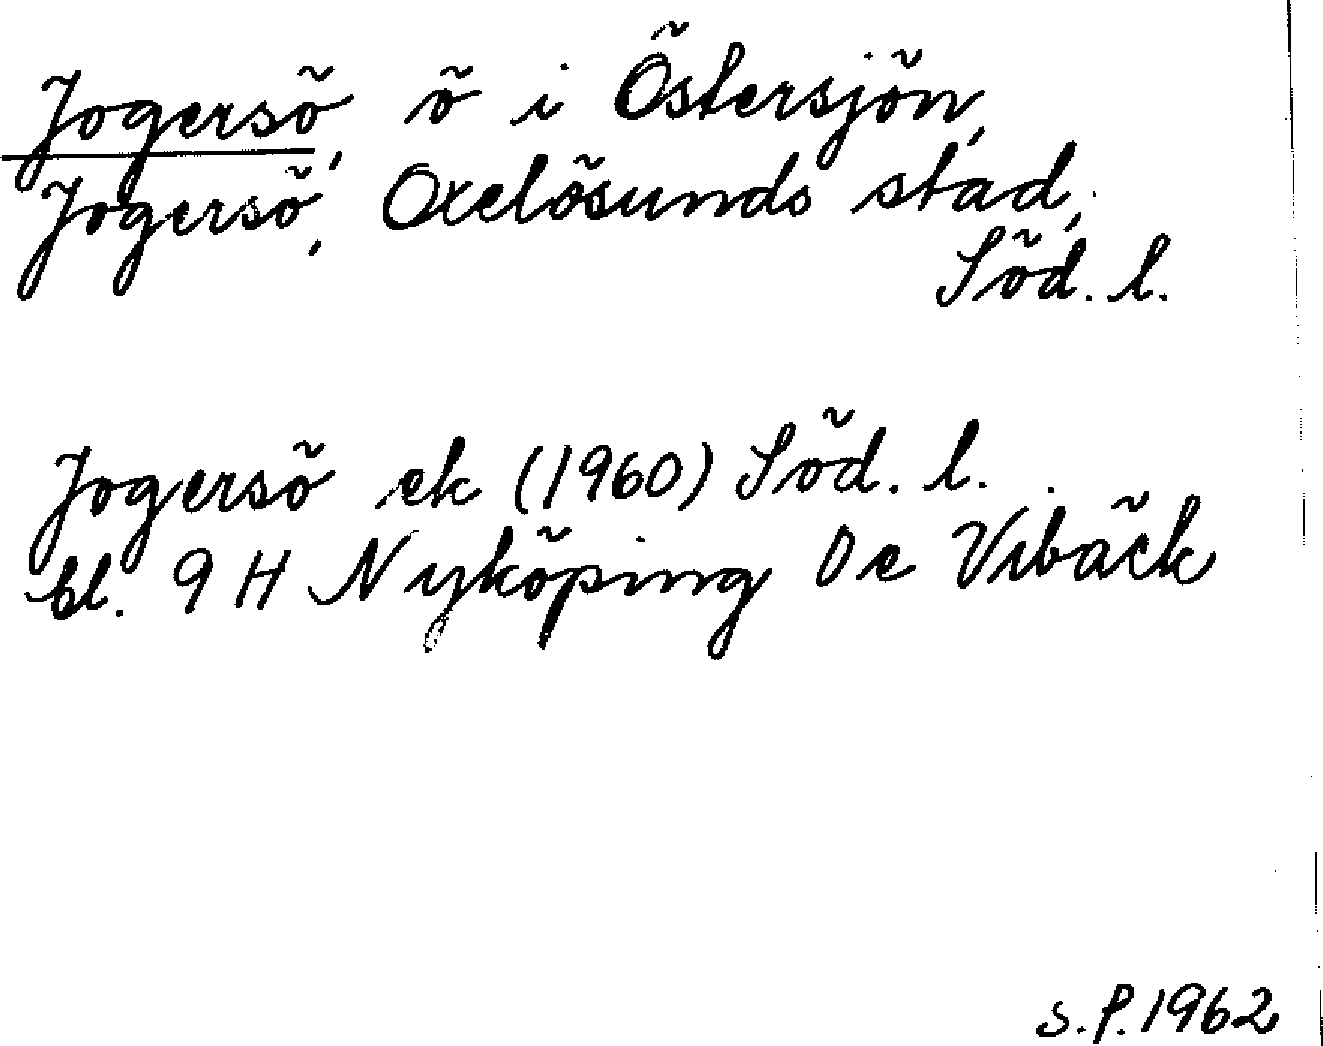 Jogersö, ö i Östersjön,
Jogersö, Oxelösunds stad,
Söd. l.
Jogersö ek (1960) Söd. l.
bl. 9 H Nyköping Oe Vibäck
S.P. 1962